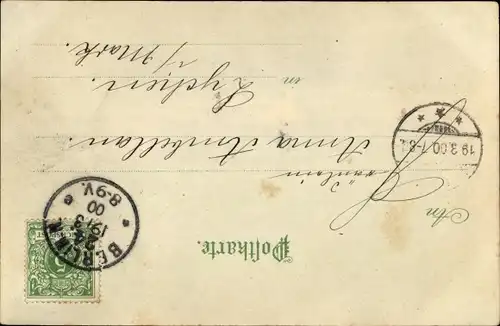 Postkarte.
An
Fräulein
Anna Anbellan.
in Lychen.
i/Mark.
BERLIN N
24
19/3
00
8-9V.
19.3.00.7-8